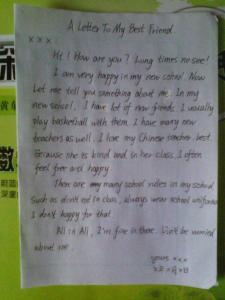 A Letter To My Best Friend
×××:
Hi! How are you? Lung times no see!
I am very happy in my new school. Now
Let me tell you something about me. In my
new school, I have lot of new friends. I usually
play basketball with them. I have many new
teachers as well. I love my Chinese teacher best.
Because she is kind and in her class, I often
feel free and happy.
There are many school rules in my school
Such as don't eat in class, always wear school uniforms
I don't happy for that.
All in All, I'm fine in there. Don't be worried
about me.
yours ×××
×年×月×日
深
黄
数